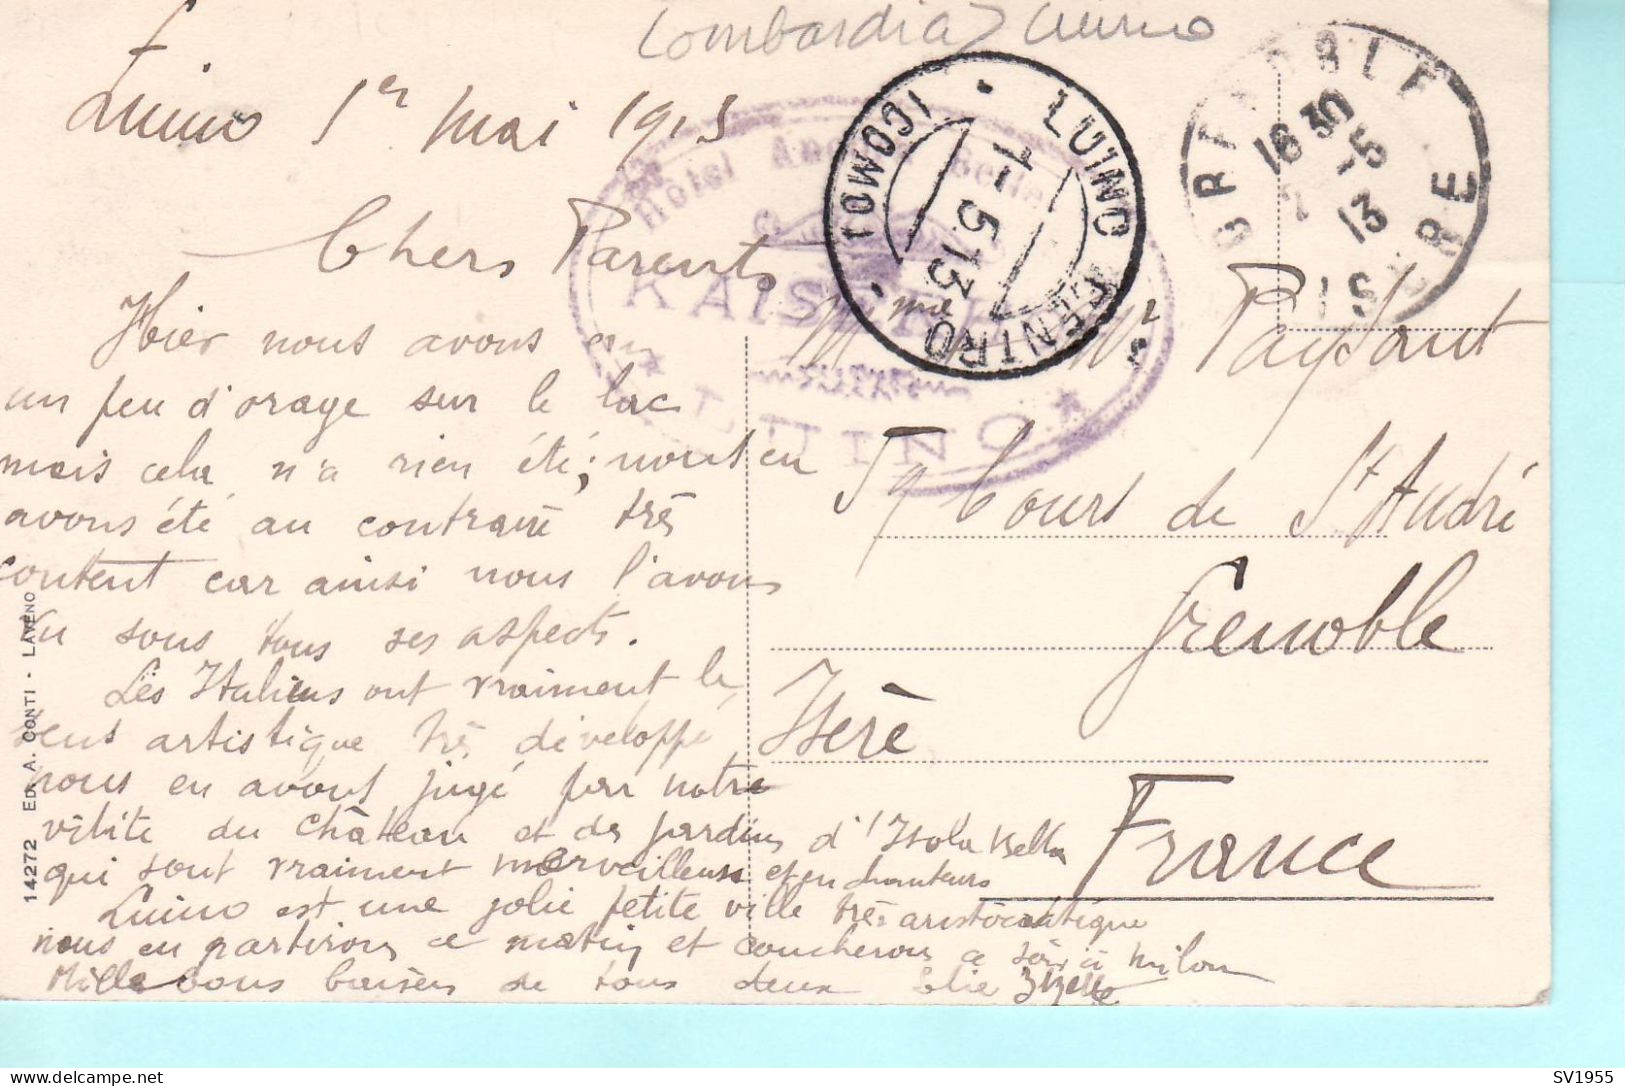 Lombardia Luino
Luino 1er Mai 1913
Chers Parents
Hier nous avons eu
un peu d'orage sur le lac
mais cela n'a rien été; nous en
avons été au contraire très
content car ainsi nous l'avons
vu sous tous ses aspects.
Les Italiens ont vraiment le
sens artistique très développé
nous en avons jugé par notre
visite du château et des jardins d'Isola Bella
qui sont vraiment merveilleux et enchanteurs
Luino est une jolie petite ville très aristocratique
nous en partirons ce matin et coucherons ce soir à Milan
Mille bons baisers de tous deux
Mme Mr Paysant
59 Cours de St André
Grenoble
Isère
France
LUINO CENTRO
(COMO)
1-5 13
GRENOBLE
16 30
5
13
ISERE
Hôtel
KAISERHOF
LUINO
14272 ED. A. CONTI - LAVENO
SV1955